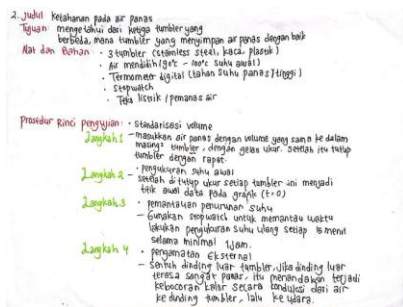 2. Judul Ketahanan pada air panas
Tujuan mengetahui dari ketiga tumbler yang
berbeda, mana tumbler yang menyimpan air panas dengan baik
Alat dan Bahan : · 3 tumbler (stainless steel, kaca, plastik)
· Air mendidih (90°C - 100°C suhu awal)
· Termometer digital (tahan suhu panas/tinggi)
· Stopwatch
· Teko listrik / pemanas air
Prosedur Rinci pengujian : · Standarisasi volume
Langkah 1 - masukkan air panas dengan volume yang sama ke dalam
masing² tumbler, dengan gelas ukur. Setelah itu tutup
tumbler dengan rapat.
Langkah 2 · pengukuran suhu awal
- setelah di tutup ukur setiap tumbler ini menjadi
titik awal data pada grafik (t=0)
Langkah 3 · pemantauan penurunan suhu
- Gunakan stopwatch untuk memantau waktu
lakukan pengukuran suhu ulang setiap 15 menit
selama minimal 1 jam.
Langkah 4 · pengamatan Eksternal
- Sentuh dinding luar tumbler, Jika dinding luar
terasa sangat panas, itu menandakan terjadi
kebocoran kalor secara konduksi dari air
ke dinding tumbler, lalu ke udara.